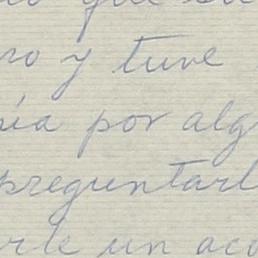 que su
ro y tuve
ía por alg
preguntarl
rle un aco